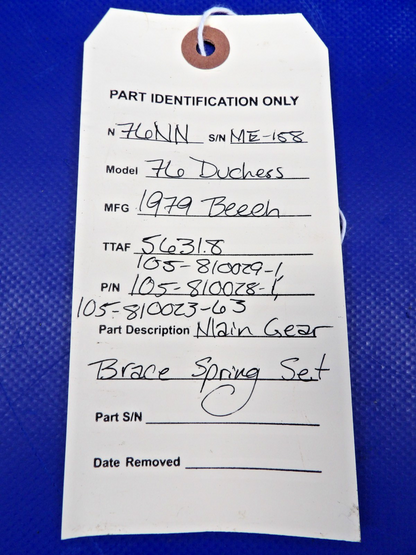 PART IDENTIFICATION ONLY
N 76NN S/N ME-158
Model 76 Duchess
MFG 1979 Beech
TTAF 5631.8
105-810029-1,
P/N 105-810028-1,
105-810023-63
Part Description Main Gear
Brace Spring Set
Part S/N
Date Removed